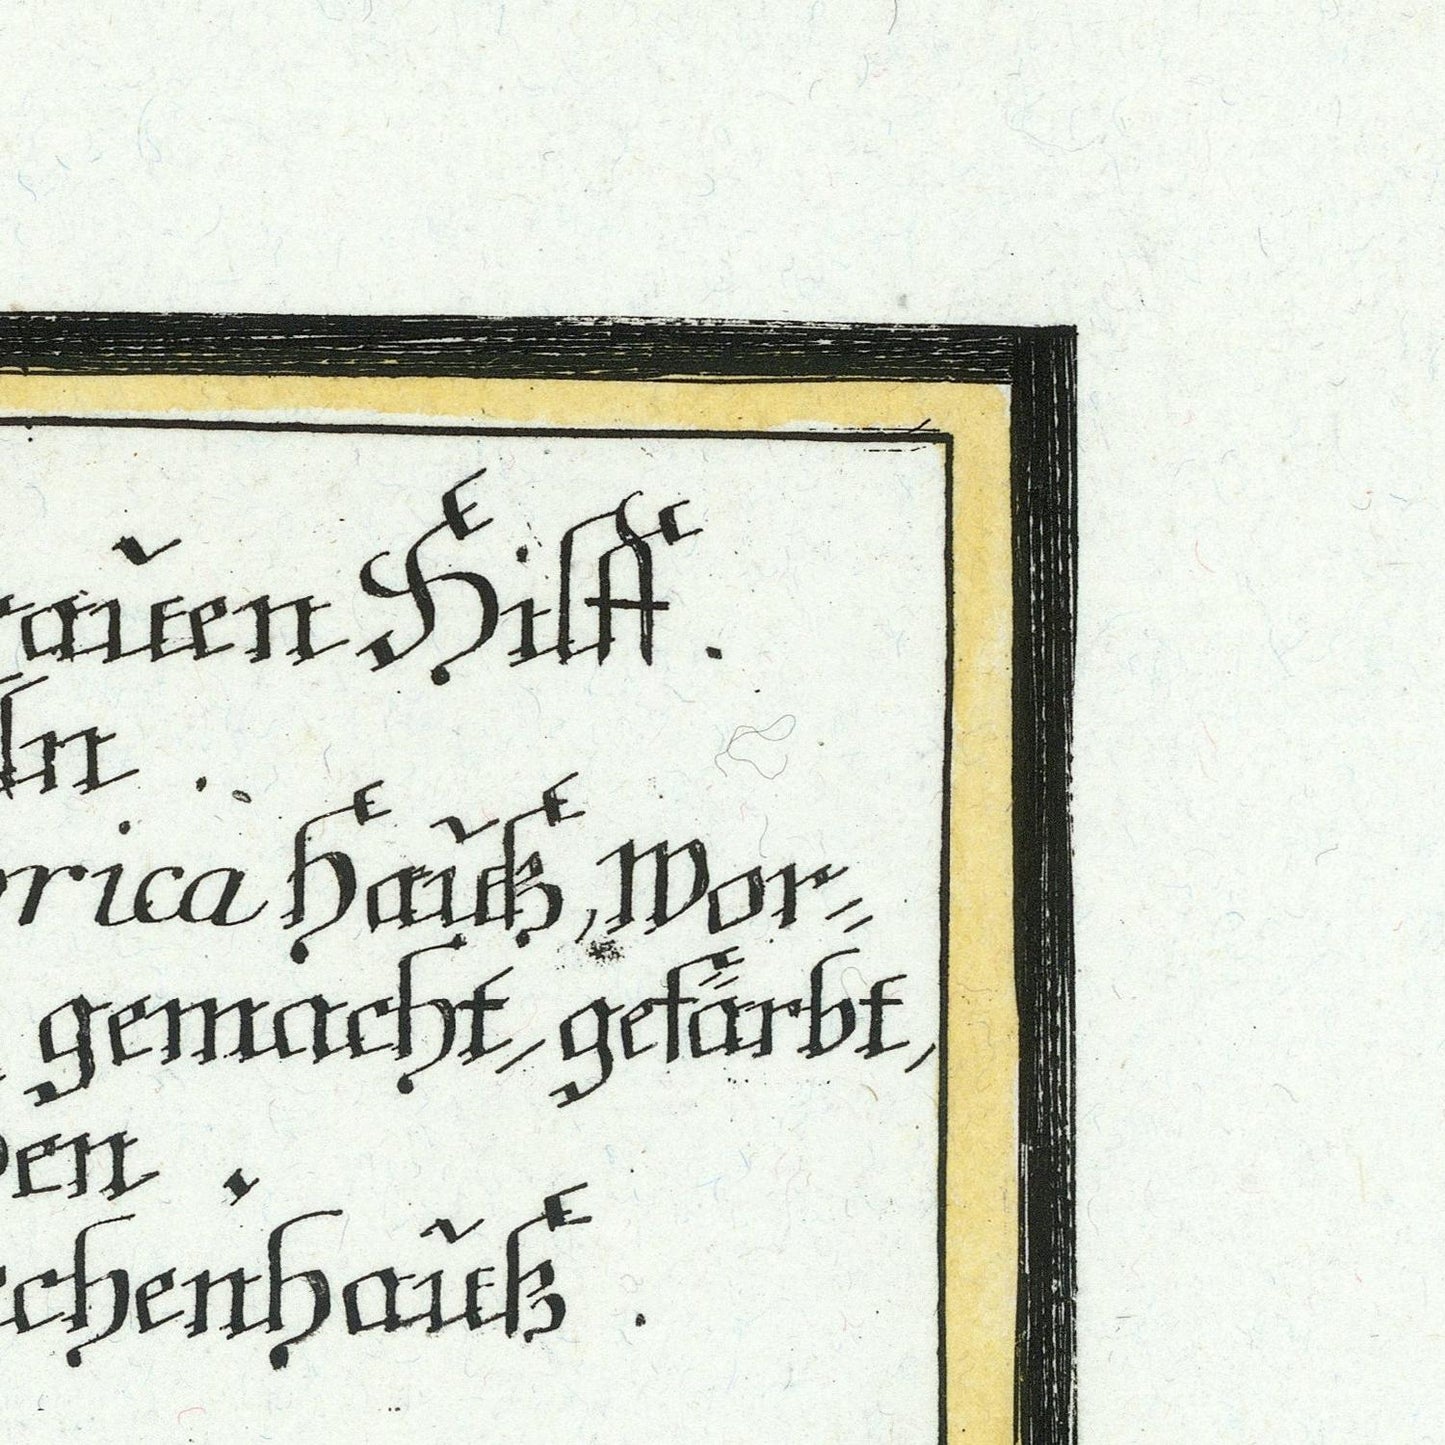 rauen Hilff.
ln.
rica hauß, Wor=
gemacht, gefärbt,
en.
chenhauß.